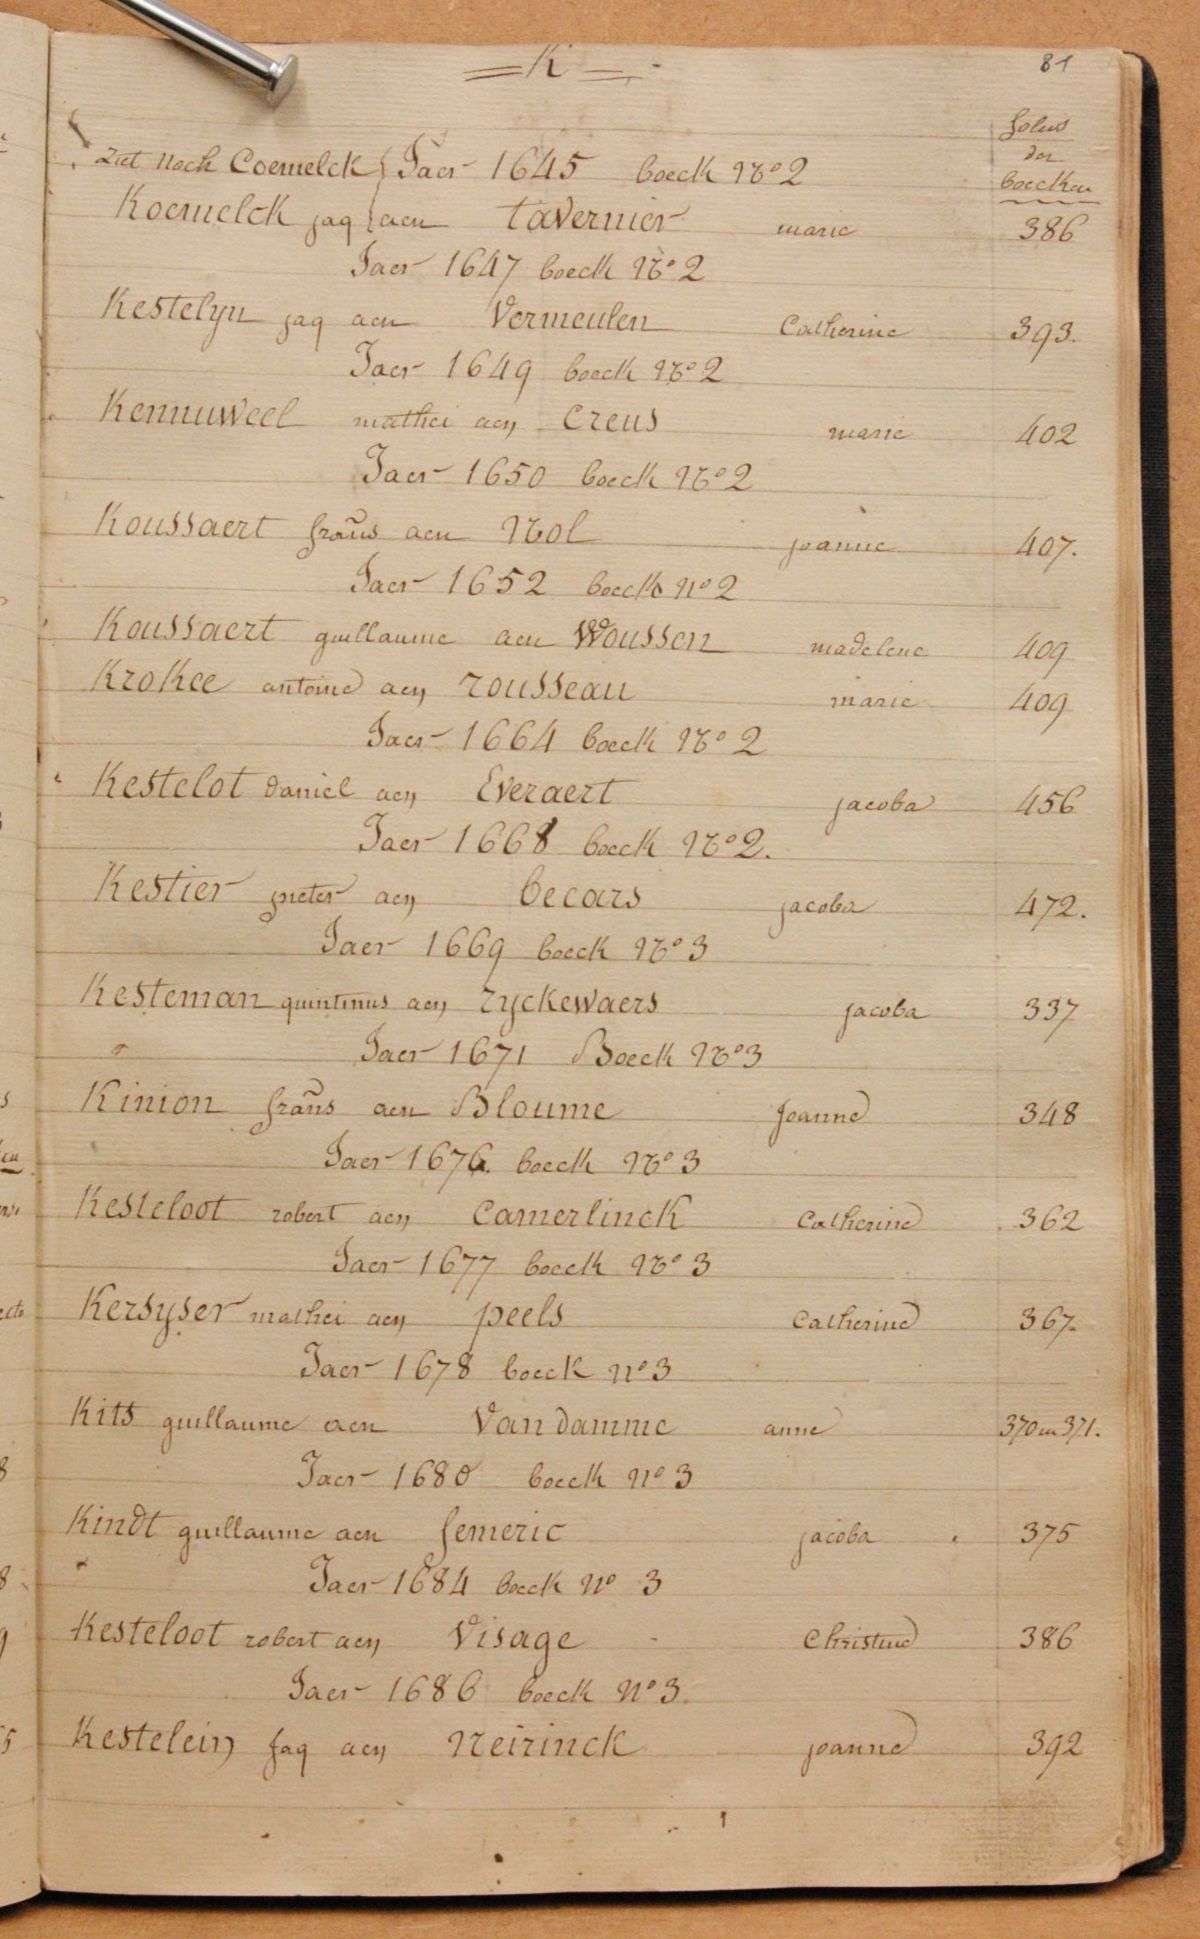 K
81
folius
der
boecken
ziet noch Coemelck { Jaer 1645 boeck No 2
Koemelck jaq aen tavernier marie 386
Jaer 1647 boeck No 2
Kestelyn jaq aen Vermeulen Catherine 393.
Jaer 1649 boeck No 2
Kennuweel mathei aen Creus marie 402
Jaer 1650 boeck No 2
Koussaert frans aen Nol joanne 407.
Jaer 1652 boeck no 2
Koussaert guillaume aen Woussen madelene 409
Krokee antoine aen rousseau marie 409
Jaer 1664 boeck No 2
Kestelot daniel aen Everaert jacoba 456
Jaer 1668 boeck No 2.
Kestier pieter aen becars jacoba 472.
Jaer 1669 boeck No 3
Kesteman quintinus aen ryckewaers jacoba 337
Jaer 1671 Boeck No 3
Kinion frans aen Bloume Joanne 348
Jaer 1676. boeck No 3
Kesteloot robert aen Camerlinck Catherine 362
Jaer 1677 boeck No 3
Kersyser mathei aen peels Catherine 367.
Jaer 1678 boeck no 3
Kits guillaume aen Van damme anne 370 en 371.
Jaer 1680 boeck no 3
Kindt guillaume aen femeric jacoba 375
Jaer 1684 boeck no 3
Kesteloot robert aen Visage Christine 386
Jaer 1686 boeck no 3.
Kestelein Jaq aen Neirinck joanne 392